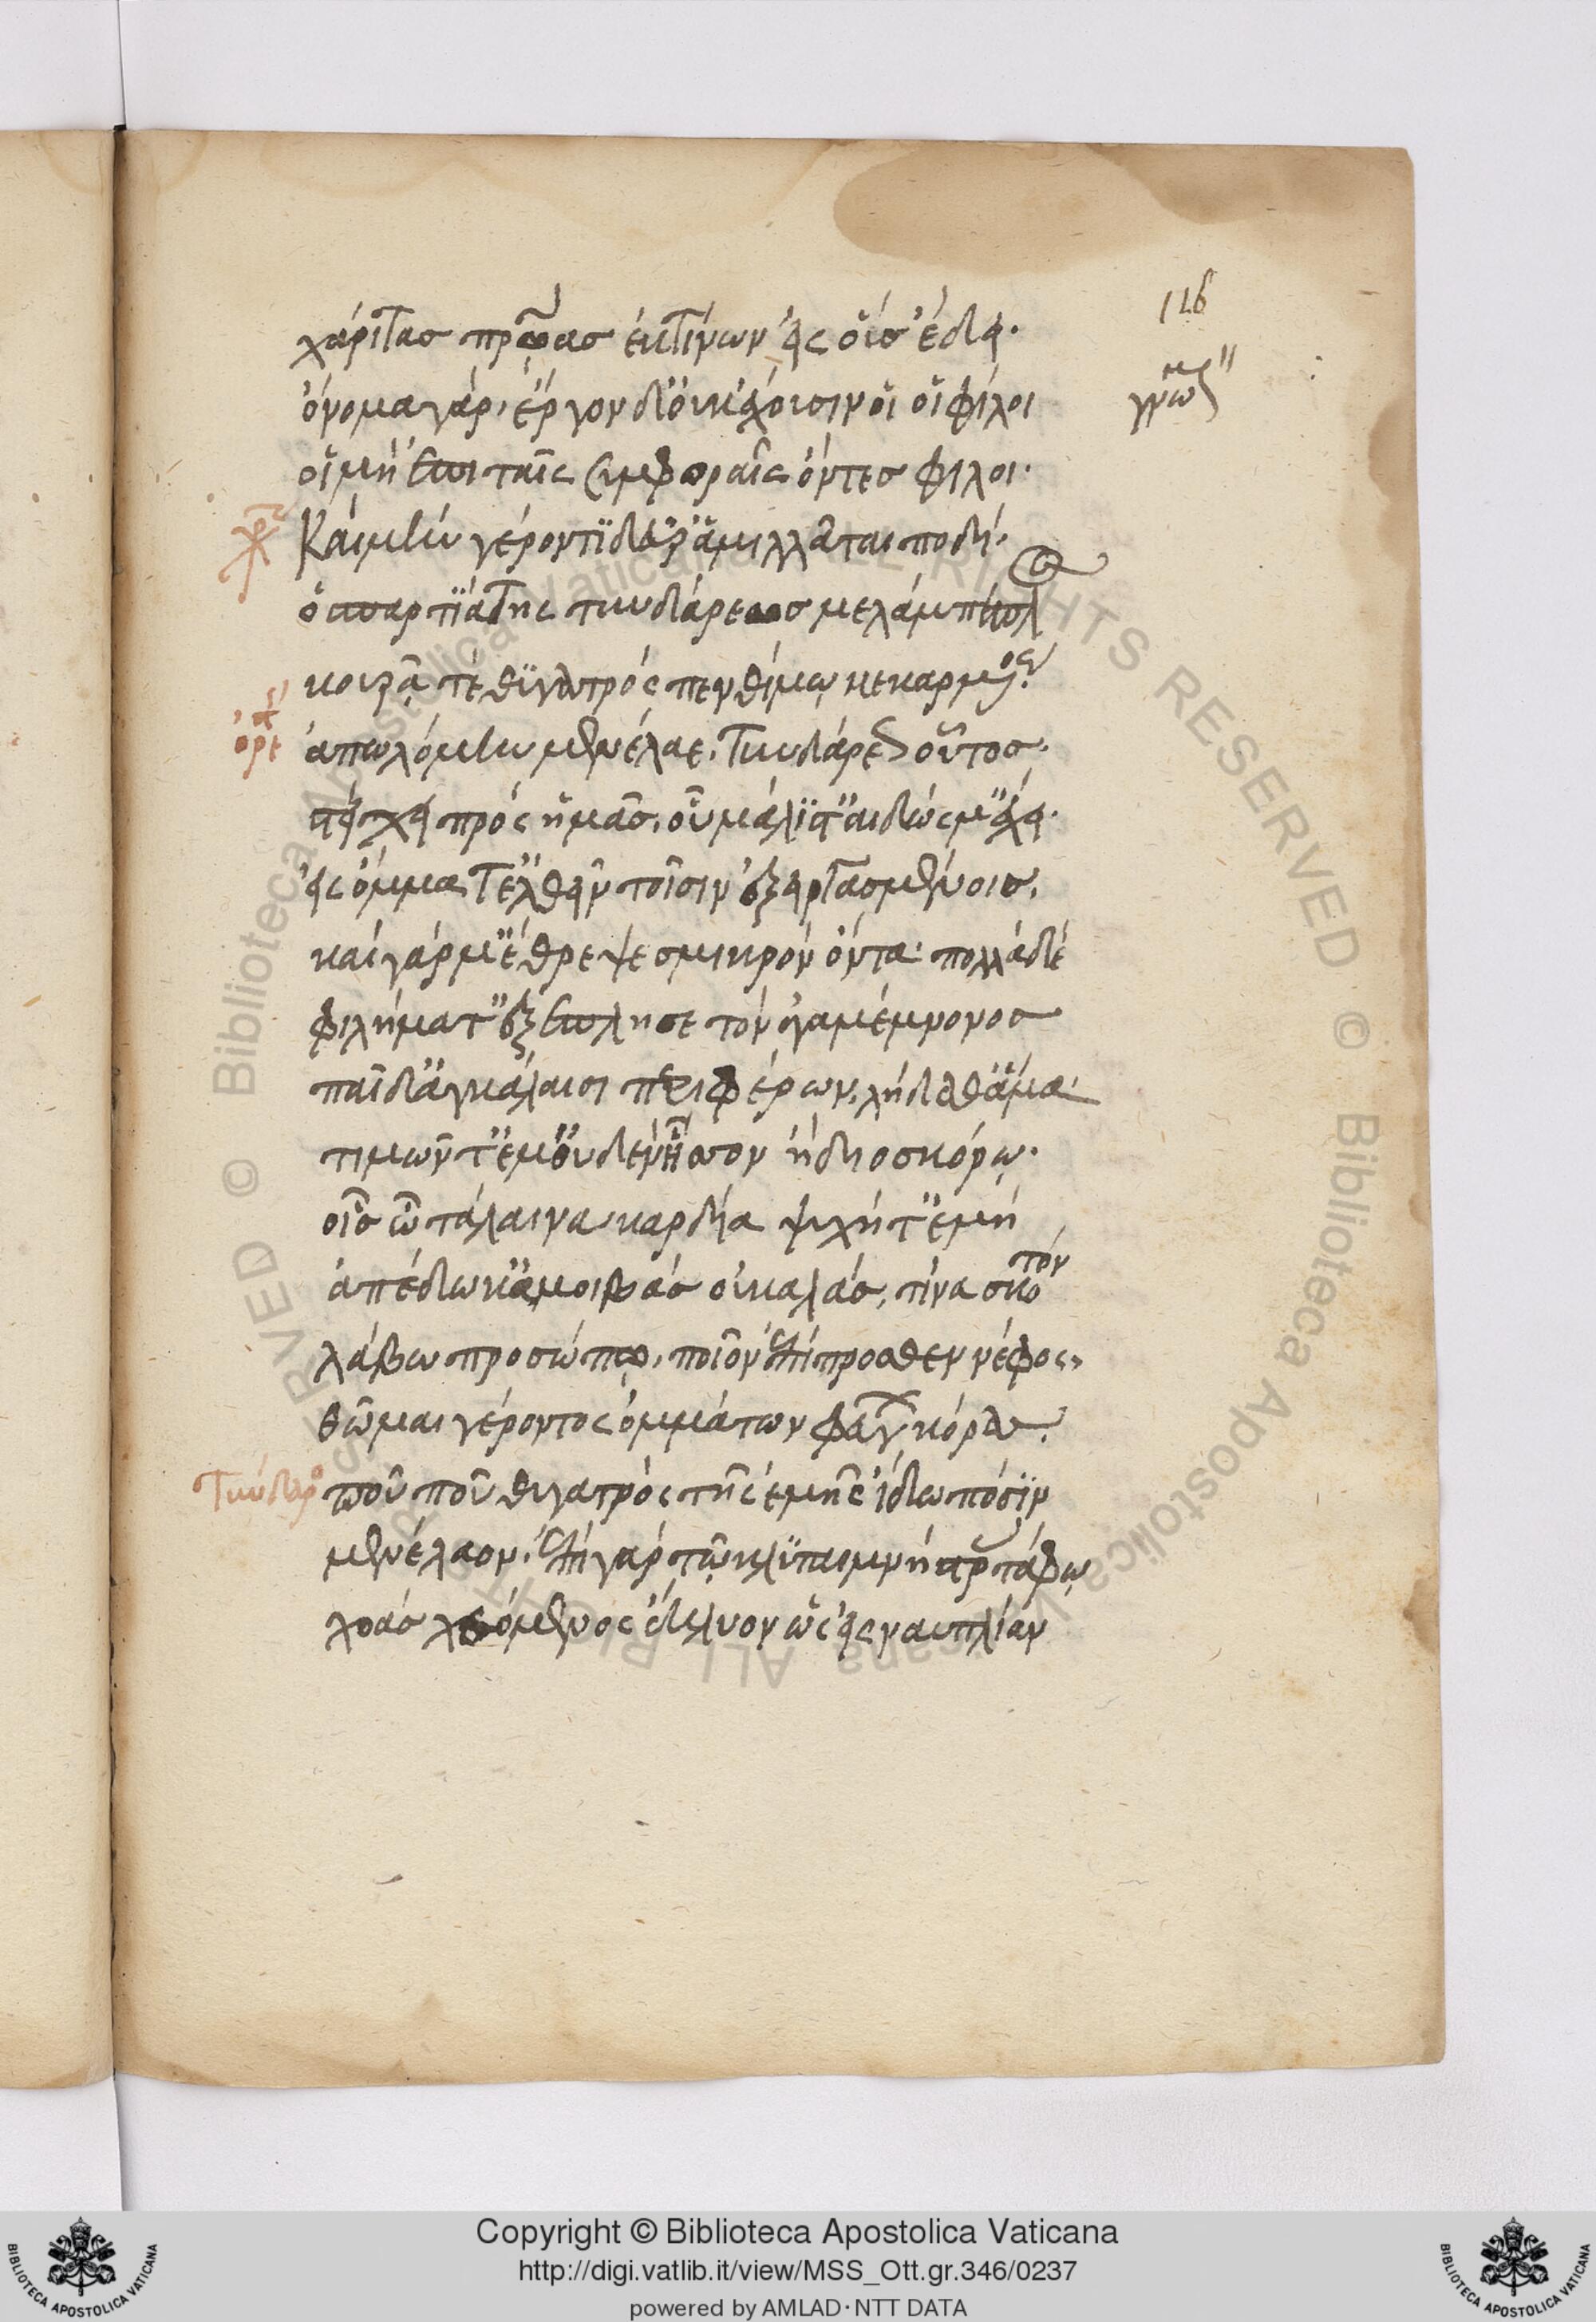 116
χάριτας πατρῴας ἐκτίνων εἰς οὕς σ' ἔδει.
ὄνομα γάρ, ἔργον δ' οὐκ ἔχουσιν οἱ φίλοι
γνωμ
οἱ μὴ ἐπὶ ταῖς συμφοραῖς ὄντες φίλοι.
χορ Καὶ μὴν γέροντι δεῦρ' ἁμιλλᾶται ποδὶ.
ὁ σπαρτϊάτης τυνδάρεως μελάμπεπλος
κουρᾷ τε θυγατρός πενθίμῳ κεκαρμένος.
ὀρέστ ἀπωλόμην μενέλαε. Τυνδάρεως οὗτος.
στείχει πρὸς ἡμᾶς. οὗ μάλϊστ' αἰδώς μ' ἔχει.
εἰς ὄμματ' ἐλθεῖν τοῖσιν ἐξειργασμένοις.
καὶ γάρ μ' ἔθρεψε σμικρὸν ὄντα· πολλὰ δὲ
φιλήματ' ἐξέπλησε τὸν ἀγαμέμνονος
παῖδ' ἀγκάλαισι περιφέρων. λήδα θ' ἅμα·
τιμῶν τ' ἐμ' οὐδὲν ἧττον ἢ διοσκόρω.
οἷς ὦ τάλαινα καρδία ψυχή τ' ἐμὴ
ἀπέδωκ' ἀμοιβὰς οὐ καλάς. τίνα σκότον
λάβω προσώπῳ. ποῖον ἐπίπροσθεν νέφος.
θῶμαι γέροντος ὀμμάτων φεύγων κόρας.
Τυνδαρ ποῦ ποῦ θυγατρὸς τῆς ἐμῆς ἴδω πόσϊν
μενέλαον. ἐπὶ γὰρ τῷ κλυταιμνήστρας τάφῳ
χοὰς χεόμενος ἔκλυον ὡς εἰς ναυπλίαν
Copyright © Biblioteca Apostolica Vaticana
http://digi.vatlib.it/view/MSS_Ott.gr.346/0237
powered by AMLAD·NTT DATA